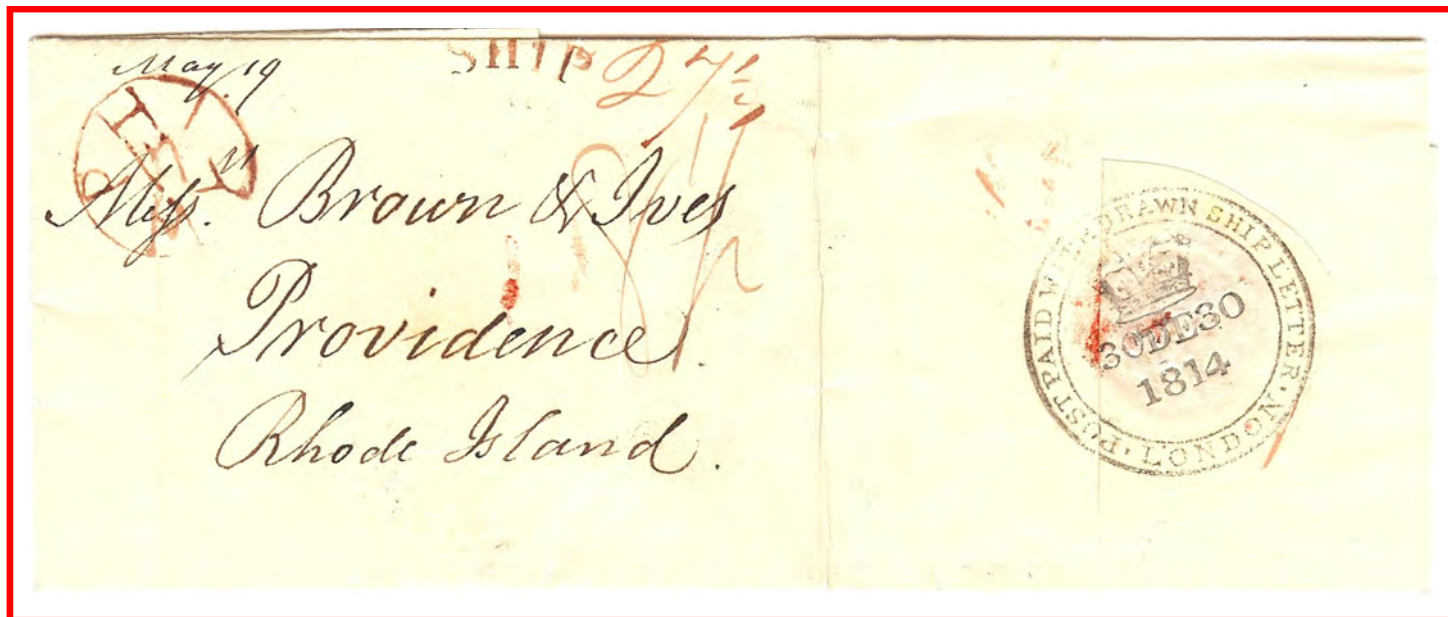 May 19
SHIP 27½
Mess.rs Brown & Ives
Providence
Rhode Island.
POST PAID WITHDRAWN SHIP LETTER · LONDON ·
30DE30
1814